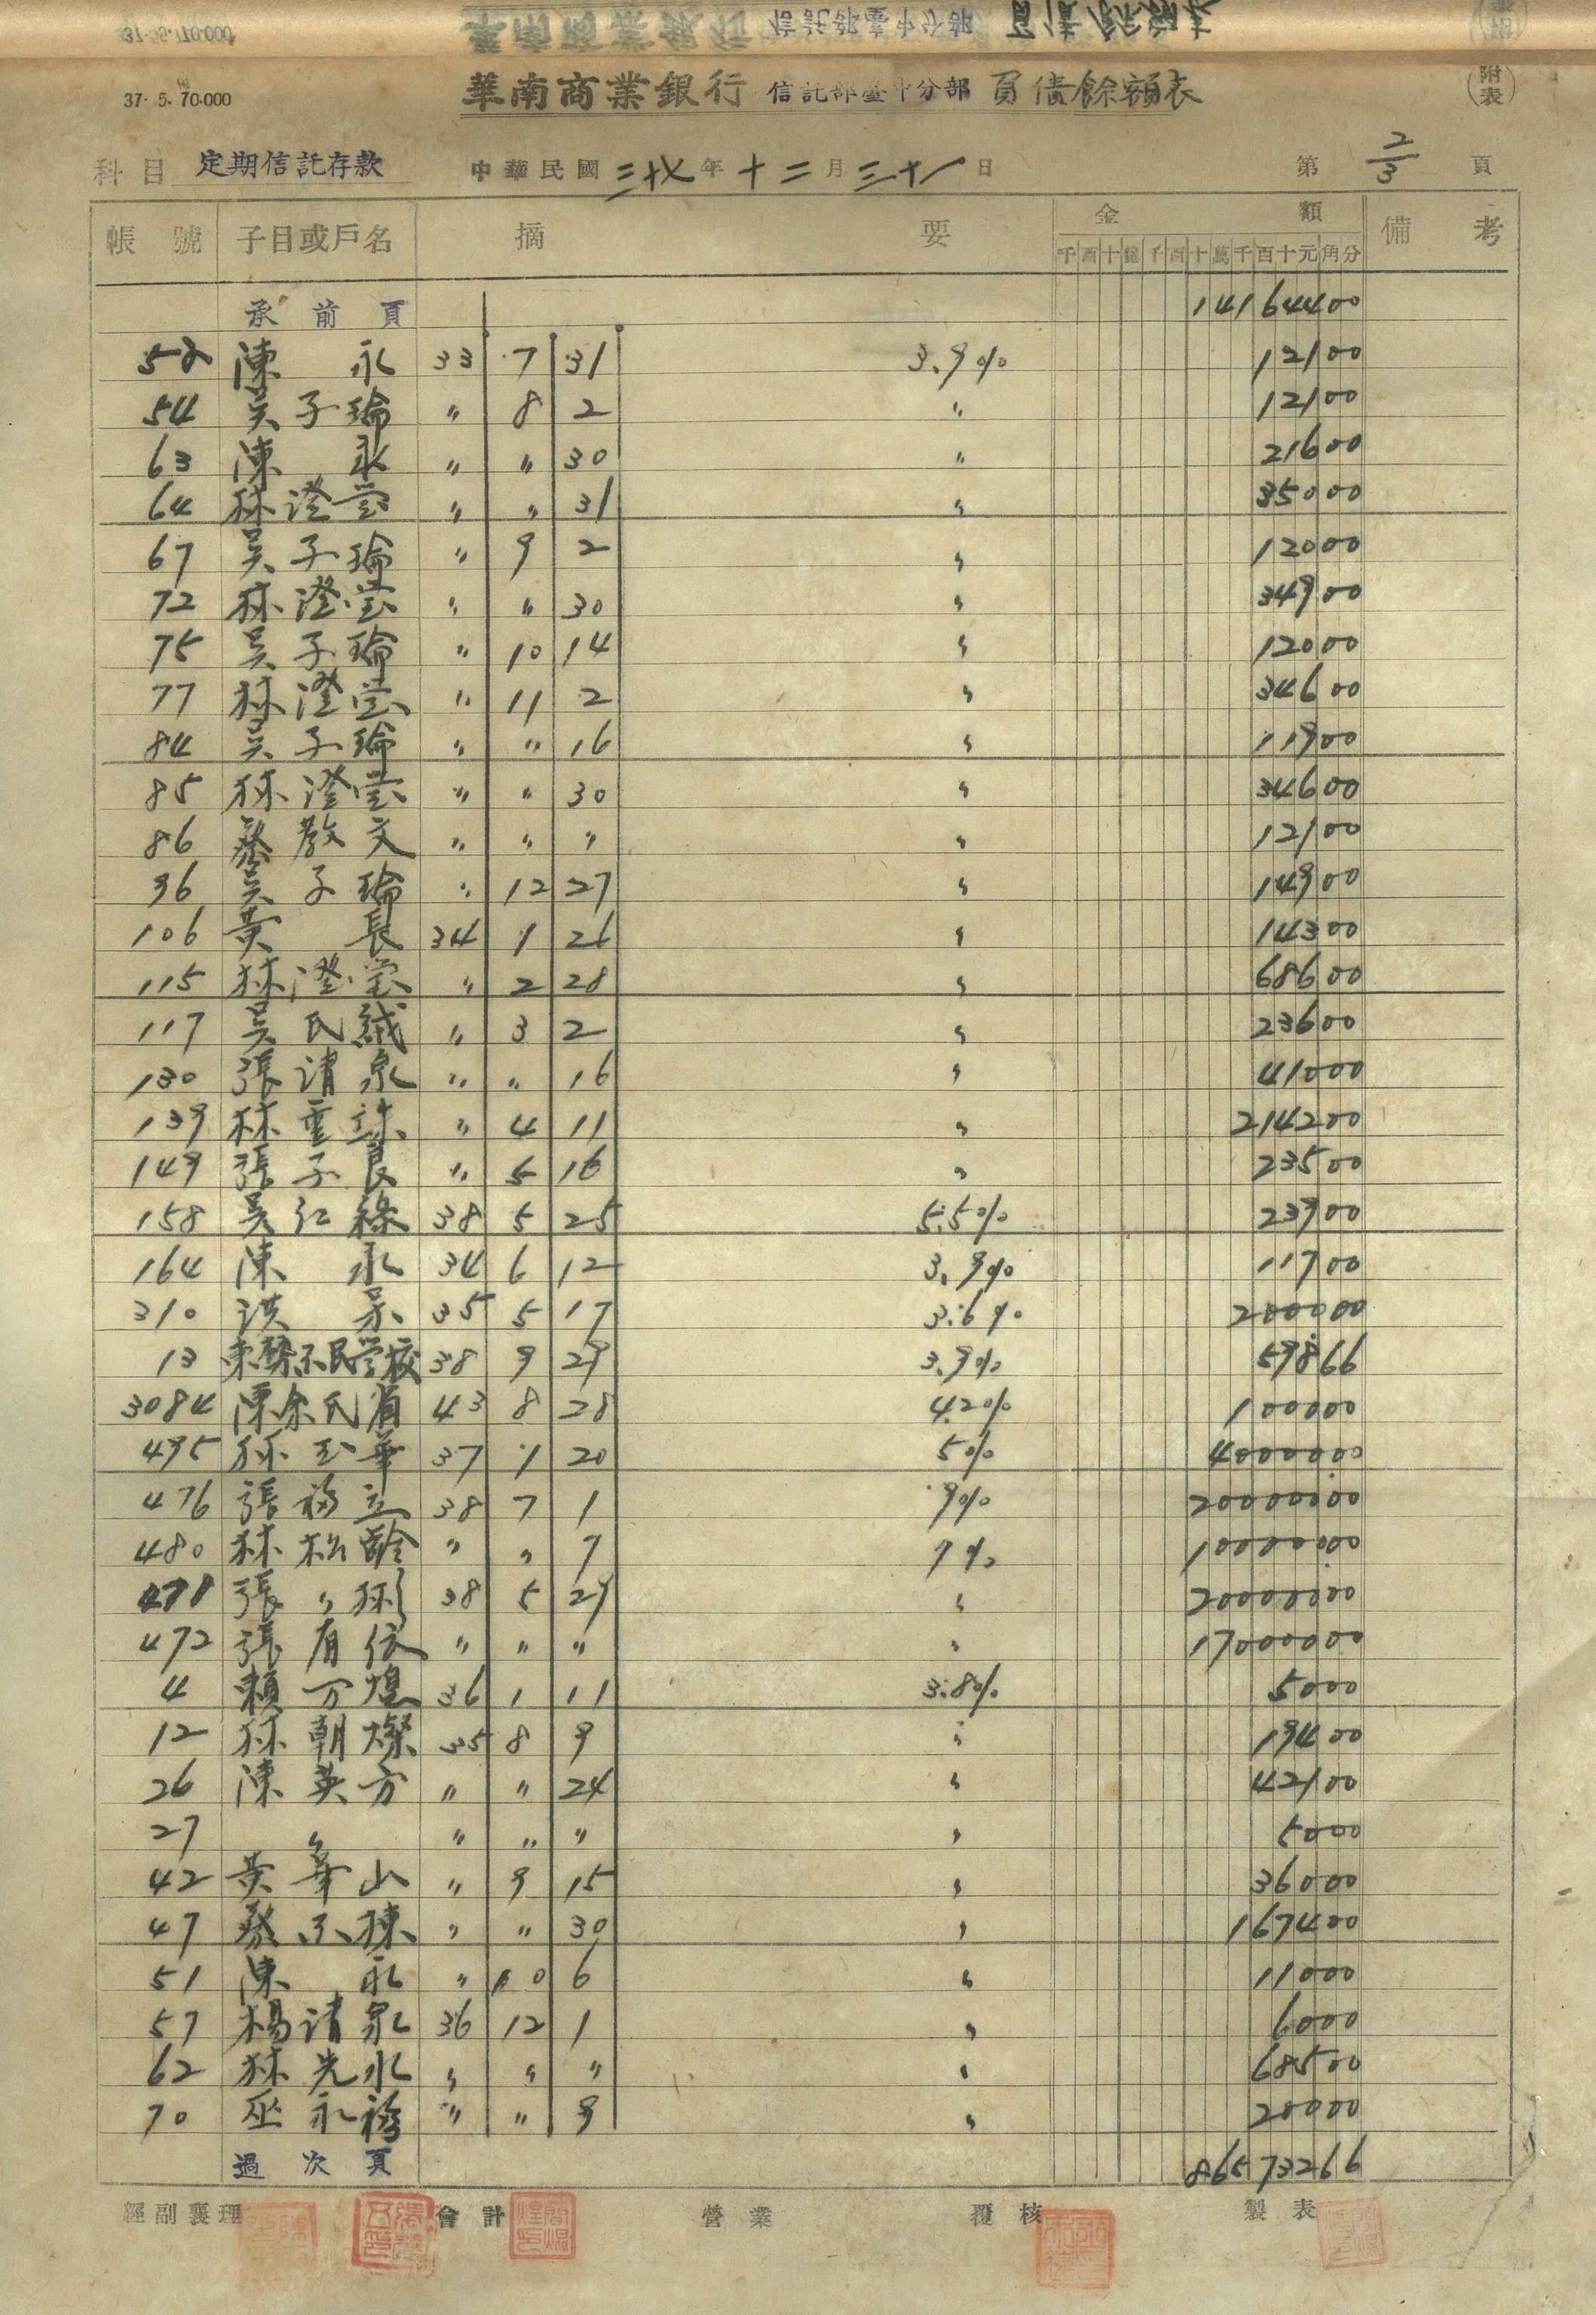 37·5·70·000
華南商業銀行 信託部臺中分部 負債餘額表 (附表)
科目 定期信託存款 中華民國三十七年十二月三十一日 第 2/3 頁
帳號 子目或戶名 摘要 金額 備考
千百十億千百十萬千百十元角分
承前頁 14164400
52 陳永 33 7 31 3.9% 12100
54 吳子瑜 〃 8 2 〃 12100
63 陳永 〃 〃 30 〃 21600
64 林澄堂 〃 〃 31 〃 35000
67 吳子瑜 〃 9 2 〃 12000
72 林澄堂 〃 〃 30 〃 34900
75 吳子瑜 〃 10 14 〃 12000
77 林澄堂 〃 11 2 〃 34600
84 吳子瑜 〃 〃 16 〃 11900
85 林澄堂 〃 〃 30 〃 34600
86 蔡敦文 〃 〃 〃 〃 12100
96 吳子瑜 〃 12 27 〃 14900
106 黃長 34 1 26 〃 14300
115 林澄堂 〃 2 28 〃 68600
117 吳氏絨 〃 3 2 〃 23600
130 張清泉 〃 〃 16 〃 41000
139 林重 〃 4 11 〃 214200
149 張子良 〃 5 16 〃 23500
158 吳紅綠 38 5 25 5.5% 23900
164 陳永 34 6 12 3.9% 11700
310 洪 35 5 17 3.6% 200000
13 東勢示民學校 38 9 29 3.9% 59866
3084 陳余氏省 43 8 28 4.20% 100000
495 林玉華 37 1 20 5% 4000000
476 張福立 38 7 1 9% 20000000
480 林松齡 〃 〃 7 7% 10000000
471 張〃彬 38 5 29 〃 20000000
472 張有依 〃 〃 〃 〃 17000000
4 賴万煌 36 1 11 3.8% 5000
12 林朝燦 35 8 9 〃 19400
26 陳英方 〃 〃 24 〃 42100
27 〃 〃 〃 〃 〃 5000
42 黃華山 〃 9 15 〃 36000
47 蔡示棟 〃 〃 30 〃 167400
51 陳永 〃 10 6 〃 11000
57 楊清泉 36 12 1 〃 6000
62 林光水 〃 〃 〃 〃 68500
70 巫永福 〃 〃 9 〃 20000
過次頁 86573266
經副襄理 會計 營業 覆核 製表